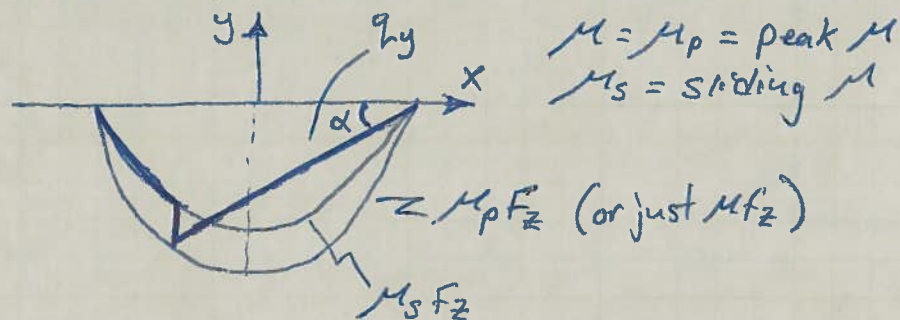 y
qy
x
α
μ = μp = peak μ
μs = sliding μ
μpFz (or just μfz)
μsFz